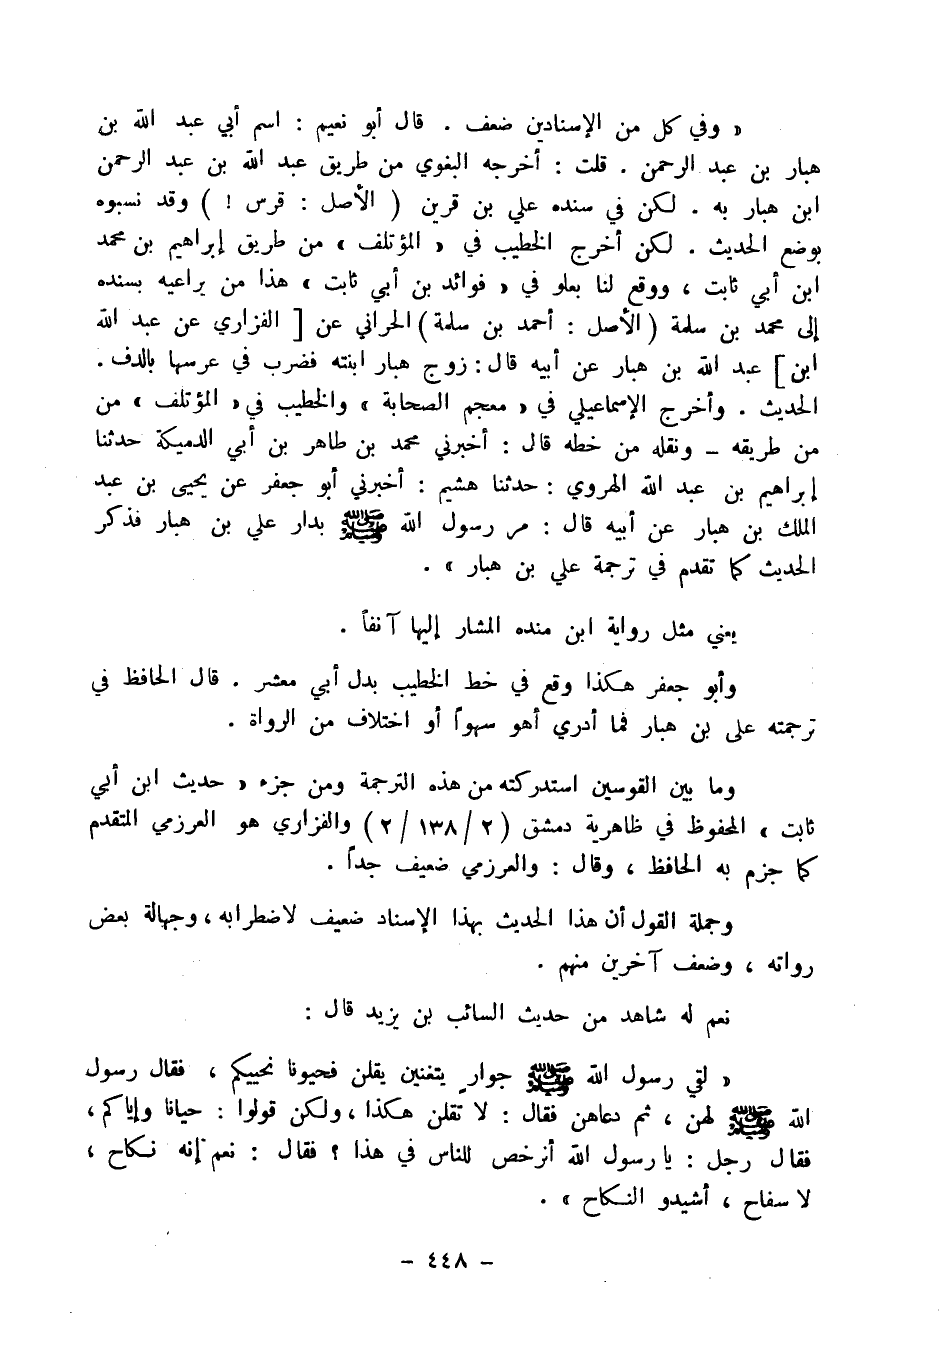 « وفي كل من الإسنادين ضعف . قال أبو نعيم : اسم أبي عبد الله بن
هبار بن عبد الرحمن . قلت : أخرجه البغوي من طريق عبد الله بن عبد الرحمن
ابن هبار به . لكن في سنده علي بن قرين ( الأصل : قرس ! ) وقد نسبوه
بوضع الحديث . لكن أخرج الخطيب في « المؤتلف » من طريق إبراهيم بن محمد
ابن أبي ثابت ، ووقع لنا بعلو في « فوائد بن أبي ثابت » هذا من يراعيه بسنده
إلى محمد بن سلمة ( الأصل : أحمد بن سلمة ) الحراني عن [ الفزاري عن عبد الله
ابن ] عبد الله بن هبار عن أبيه قال : زوج هبار ابنته فضرب في عرسها بالدف .
الحديث . وأخرج الإسماعيلي في « معجم الصحابة » والخطيب في « المؤتلف » من
من طريقه – ونقله من خطه قال : أخبرني محمد بن طاهر بن أبي الدميكة حدثنا
إبراهيم بن عبد الله الهروي : حدثنا هشيم : أخبرني أبو جعفر عن يحيى بن عبد
الملك بن هبار عن أبيه قال : مر رسول الله ﷺ بدار علي بن هبار فذكر
الحديث كما تقدم في ترجمة علي بن هبار » .
يعني مثل رواية ابن منده المشار إليها آنفاً .
وأبو جعفر هكذا وقع في خط الخطيب بدل أبي معشر . قال الحافظ في
ترجمته على بن هبار فما أدري أهو سهواً أو اختلاف من الرواة .
وما بين القوسين استدركته من هذه الترجمة ومن جزء « حديث ابن أبي
ثابت » المحفوظ في ظاهرية دمشق ( ٢ / ١٣٨ / ٢ ) والفزاري هو العرزمي المتقدم
كما جزم به الحافظ ، وقال : والعرزمي ضعيف جداً .
وجملة القول أن هذا الحديث بهذا الإسناد ضعيف لاضطرابه ، وجهالة بعض
رواته ، وضعف آخرين منهم .
نعم له شاهد من حديث السائب بن يزيد قال :
« لقي رسول الله ﷺ جوارٍ يتغنين يقلن فحيونا نحييكم ، فقال رسول
الله ﷺ لهن ، ثم دعاهن فقال : لا تقلن هكذا ، ولكن قولوا : حيانا وإياكم ،
فقال رجل : يا رسول الله أترخص للناس في هذا ؟ فقال : نعم إنه نكاح ،
لا سفاح ، أشيدو النكاح » .
– ٤٤٨ –